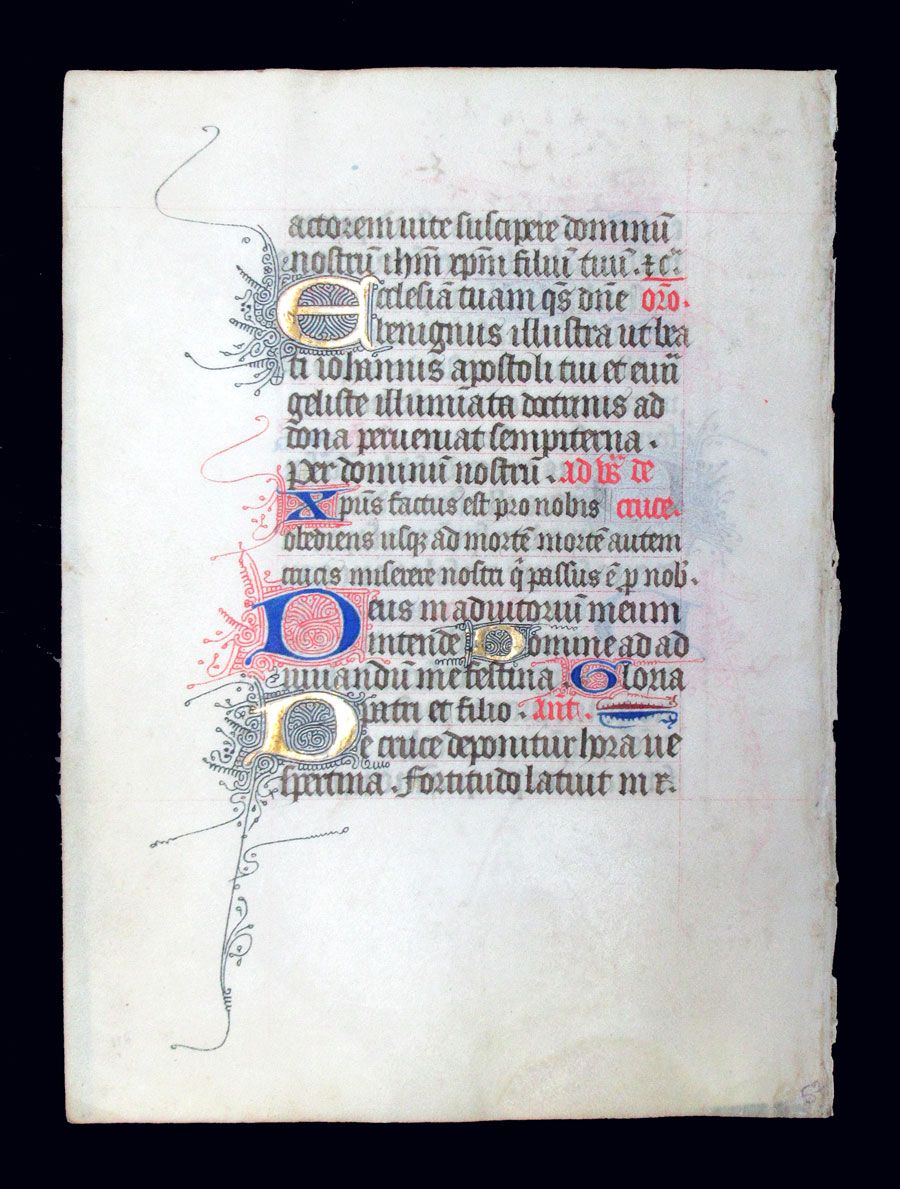 actorem uite suscipere dominū
nostrū ihm̄ xpm̄ filiū tuū . ⁊ c̄.
Ecclesiā tuam qs̄ dn̄e oro̅.
benignus illustra ut bea
ti iohannis apostoli tui et euū
geliste illumīata doctrinis ad
dona perueniat sempiterna .
per dominū nostrū . ad vs̄ de
Xpūs factus est pro nobis cruce.
obediens usqȝ ad mortē mortē autem
crucis miserere nostri q̄ passus ē p nob̄.
Deus in adiutoriū meum
intende Domine ad ad
iuuandū me festina Gloria
patri et filio . ant̄.
De cruce deponitur hora ue
spertina . Fortitudo latuit in